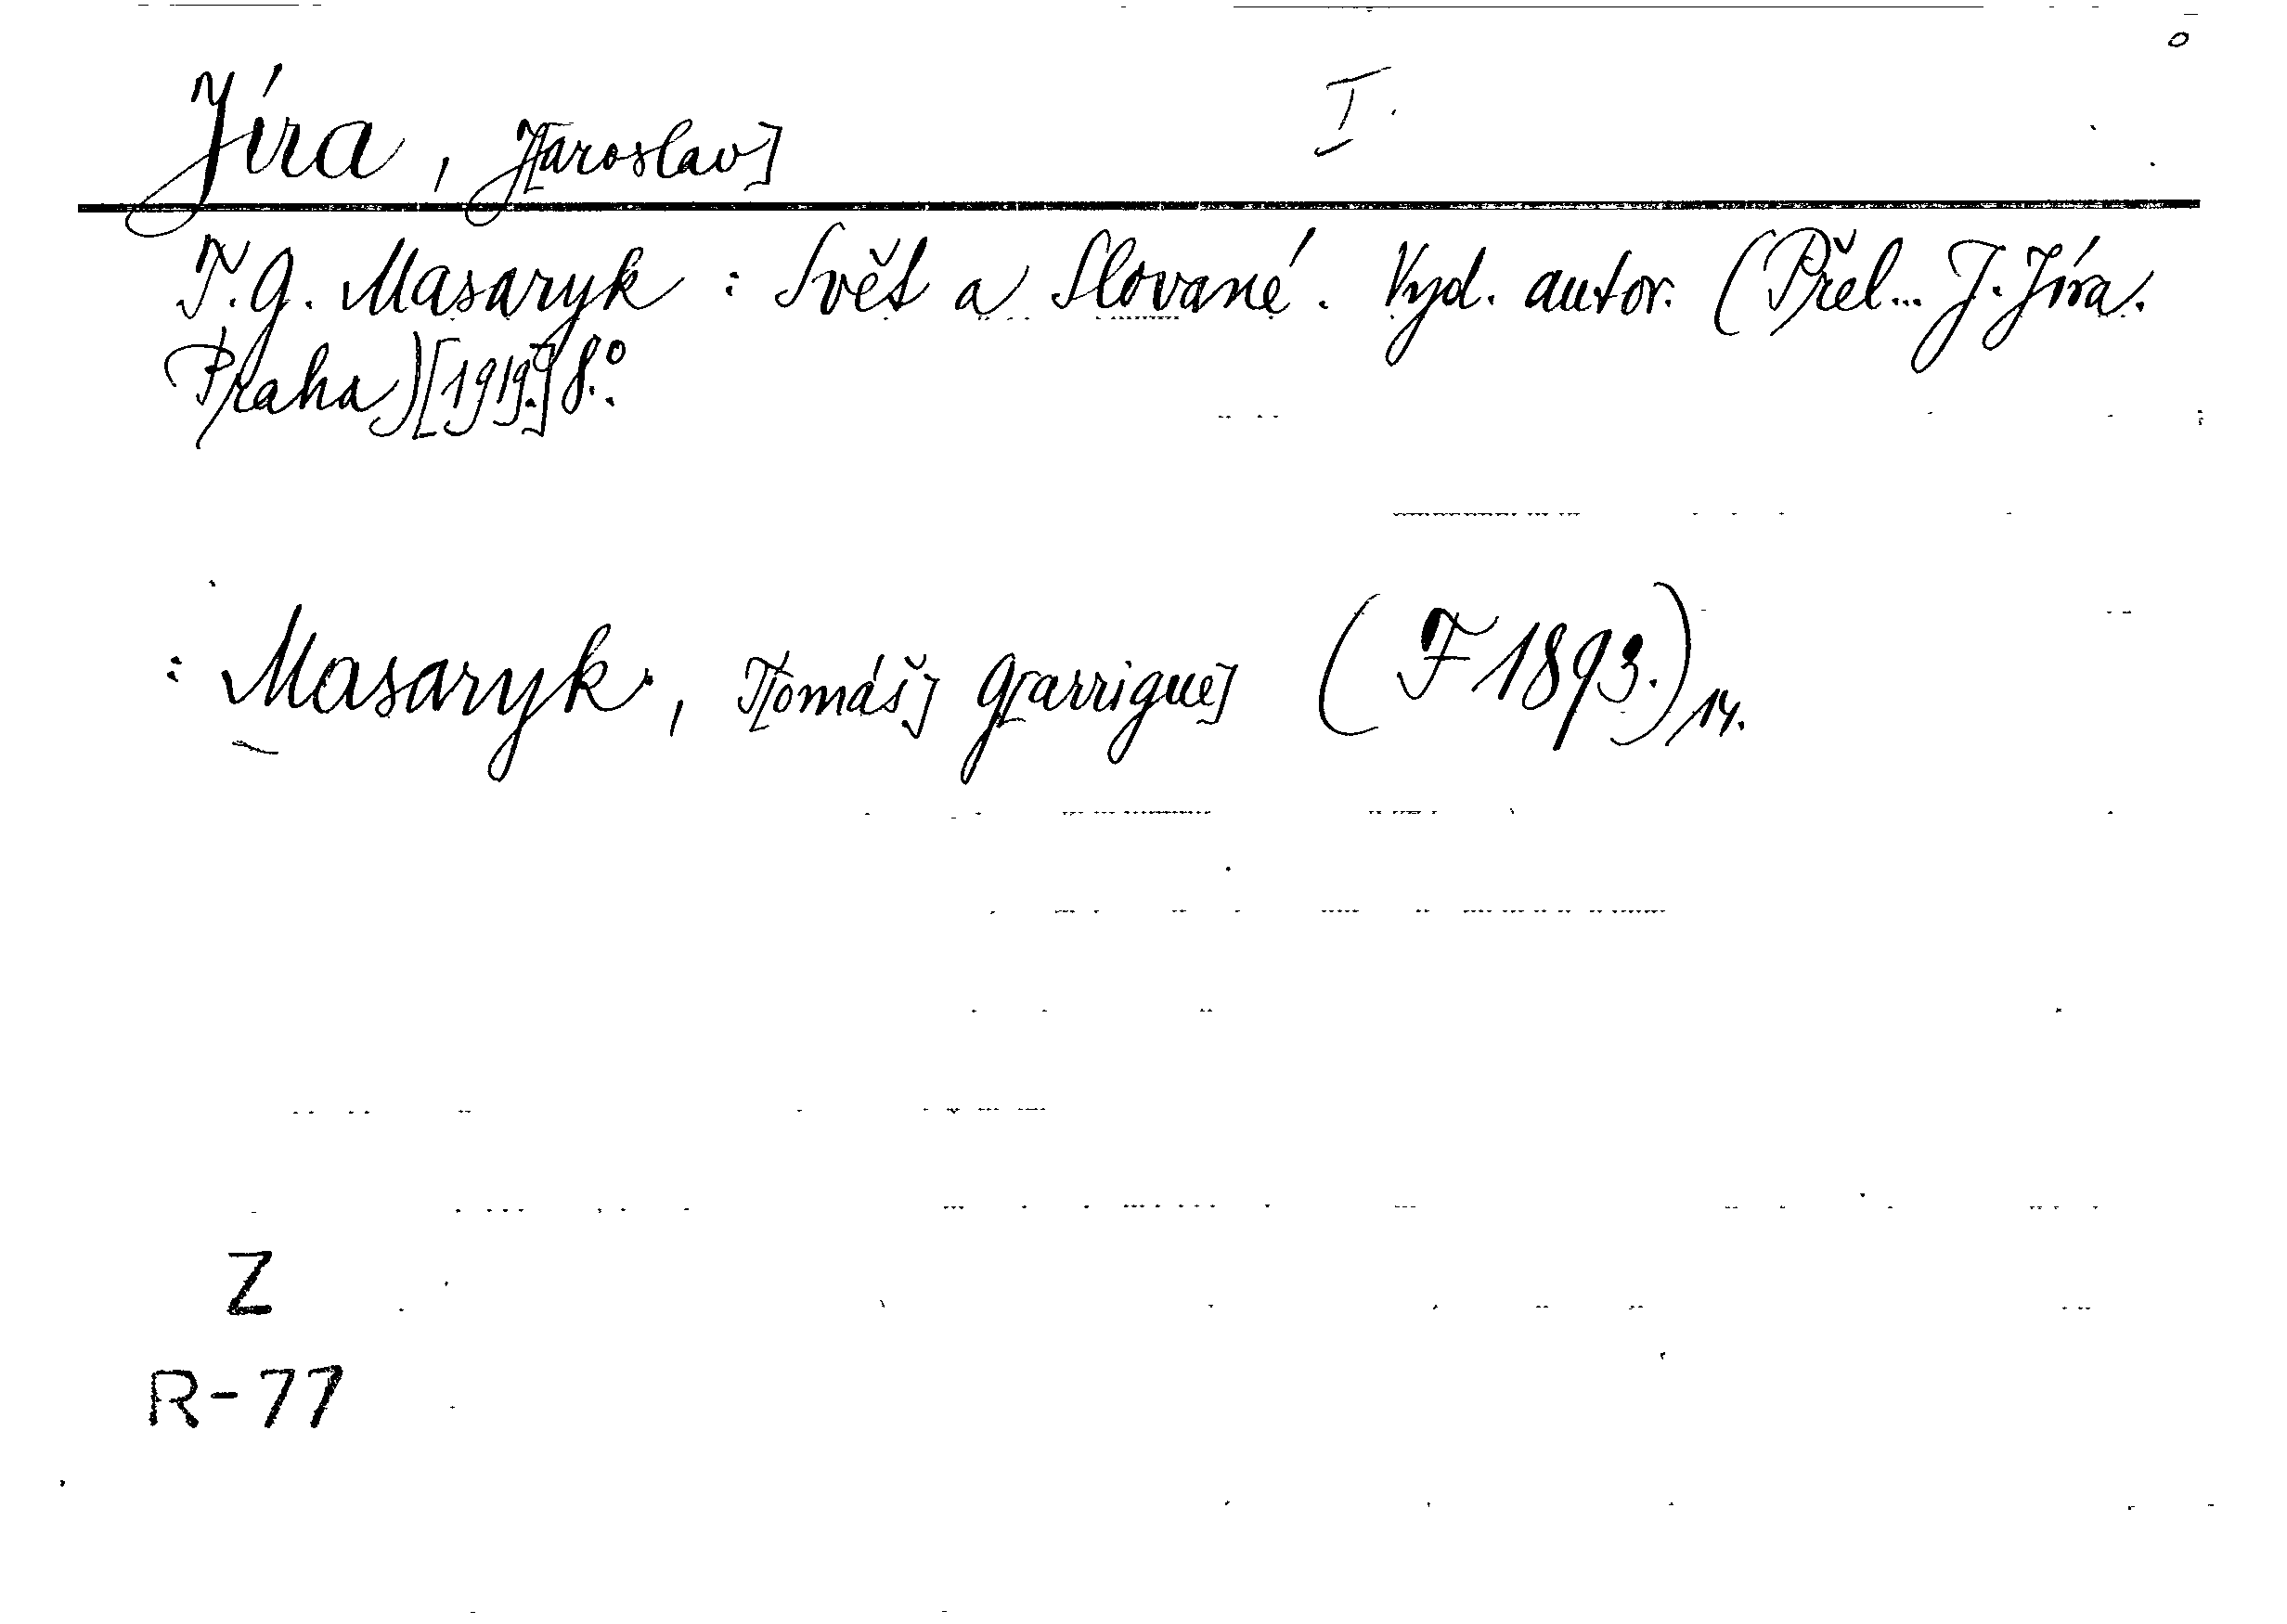 Jíra, J[aroslav] I.
T. G. Masaryk : Svět a Slované. Vyd. autor. (Přel... J. Jíra.
Praha) [1919.] 8.°
: Masaryk, T[omáš] G[arrigue] (F 1893.) 14.
Z
R-77